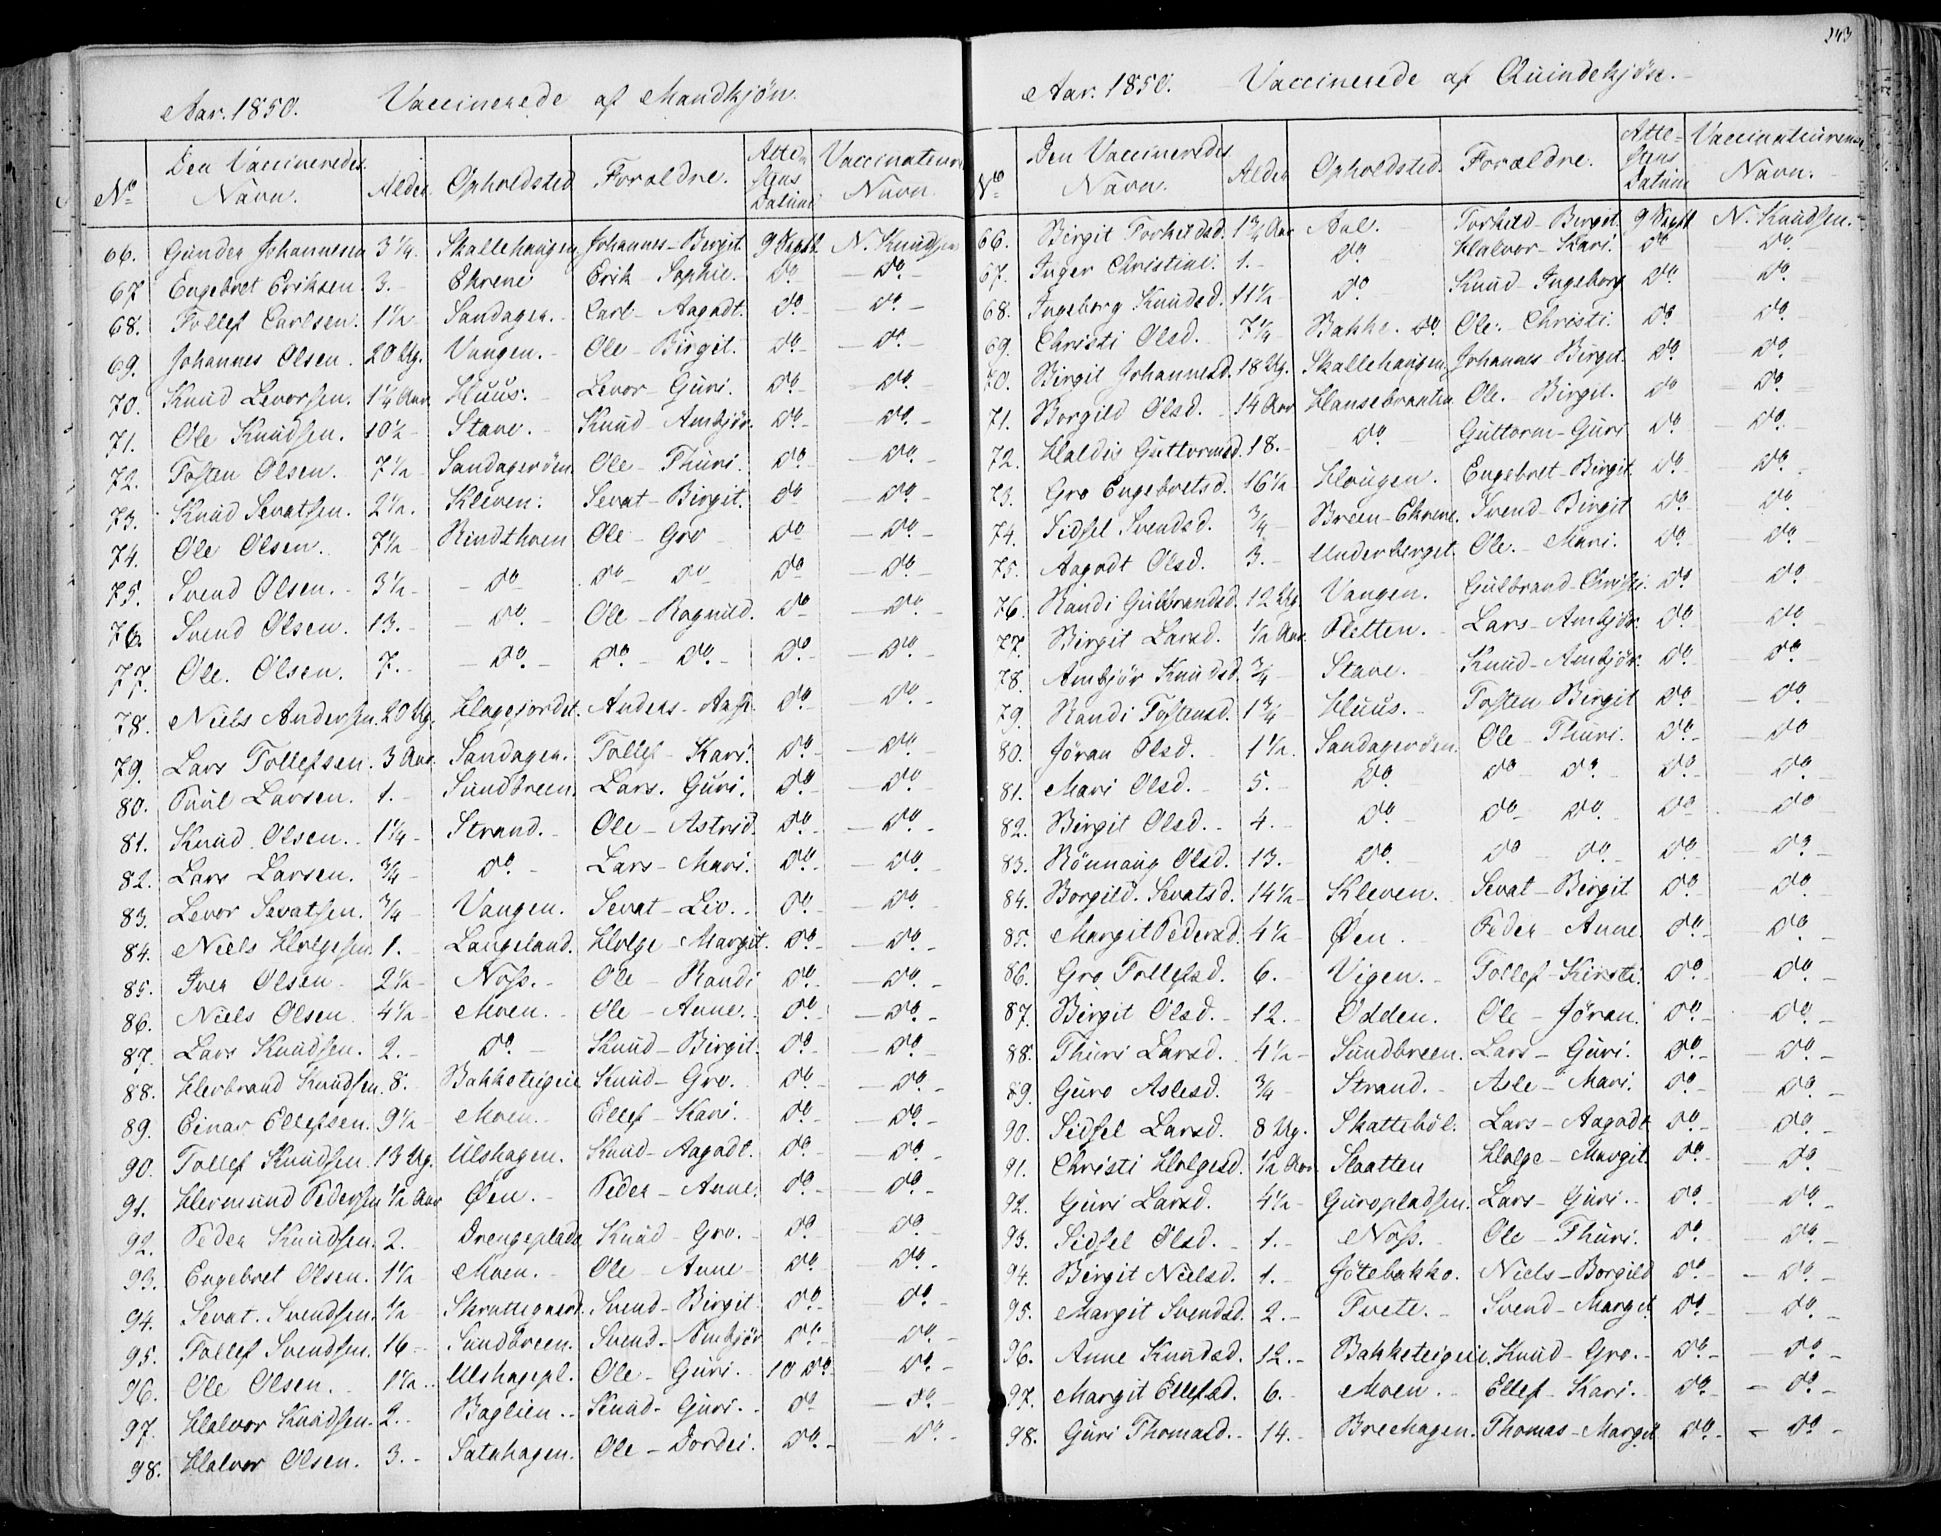 243
Aar. 1850. Vaccinerede af Mandkjøn.
No Den Vaccineredes Navn. Alder Opholdsted Forældre. Attestens Datum Vaccinateurens Navn.
66. Gunder Johannesen 3 1/4. Skallehaugen Johannes - Birgit. 9 Septr N. Knudsen
67 Engebret Eriksen 3. - Ehrene Erik - Sophie. Do - Do. -
68. Tollef Carlsen. 1 1/2 - Sandagen. - Carl - Aagodt. Do - Do. -
69. Johannes Olsen. 20 Ug. Vangen. - Ole - Birgit. Do. - Do. -
70. Knud Levorsen. 1 1/4 Aar. Huus. - Levor - Guri. Do. - Do. -
71. Ole Knudsen. 10 1/2 - Stave. - Knud - Ambjør. Do. - Do. -
72. Tosten Olsen. 7 1/2 - Sandagerøen Ole - Thuri. Do. - Do. -
73. Knud Sevatsen. 2 1/2. Kleven. Sevat - Birgit. Do - Do. -
74. Ole Olsen. 7 1/2 - Rindthoen Ole - Gro - Do - Do. -
75. Svend Olsen. - 3 1/2 - - Do Do - Do Do - Do. -
76. Svend Olsen. 13. - - Do. - Ole - Ragnild. Do - Do. -
77. Ole. Olsen. 7. - - Do. - Do. - Do. - Do. - Do. -
78. Niels Andersen. 20 Ug. Hagejordet. Anders - Aase. Do. - Do. -
79. Lars Tollefsen. 3 Aar. Sandagen. Tollef - Kari. Do. - Do. -
80. Paul Larsen. 1. - Sundbreen. Lars. Guri. Do. - Do. -
81. Knud Olsen. - 1 1/4 - Strand. - Ole - Astrid. Do. - Do. -
82. Lars Larsen. 3/4 - Do. - Lars - Mari. Do. - Do. -
83. Levor Sevatsen. 3/4 - Vangen. Sevat - Liv. - Do. - Do. -
84. Niels Holgesen. 1. - Langeland. Holge - Margit. Do. - Do. -
85. Iver Olsen - 2 1/2 - Noss. - Ole - Randi Do. - Do. -
86. Niels Olsen. 4 1/2 - Moen. - Ole - Anne. - Do. - Do. -
87. Lars Knudsen. 2. - Do. - Knud - Birgit. Do. - Do. -
88. Herbrand Knudsen. 8. Bakketeigen Knud - Gro. Do. - Do. -
89. Einar Ellefsen. 9 1/2 - Moen. - Ellef - Kari. Do. - Do. -
90. Tollef Knudsen. 13 Ug. Ulshagen. Knud - Aagodt. Do. - Do. -
91. Hermund Pedersen 1/2 Aar Øen. - Peder - Anne. Do. - Do. -
92. Peder Knudsen. 2. - Drengeplads Knud - Gro. - Do - Do. -
93. Engebret Olsen. 1 1/2 - Moen. - Ole - Anne - Do. - Do. -
94. Sevat. Svendsen. 1/2 - Skrattegaard. Svend - Birgit. Do. - Do. -
95. Tollef Svendsen. 16 - Sundbreen. Svend - Ambjør Do. - Do. -
96. Ole Olsen. - 1 1/2. - Ulshagepl. Ole - Guri. - 10 Do. - Do. -
97. Halvor Knudsen. 2. - Baglien. - Knud - Guri. - Do - Do. -
98. Halvor Olsen. 3. - Satahagen. Ole - Dordei. Do. - Do. -
Aar. 1850. - Vaccinerede af Quindekjøn. -
No Den Vaccineredes Navn. Alder Opholdsted. Forældre. Attestens Datum Vaccinateurens Navn. -
66. Birgit Torkildsd. 1 3/4 Aar Aal. Torkild - Birgit. 9 Septr N. Knudsen. -
67. Inger Christine. 1. - Do Halvor - Kari. Do Do. -
68. Ingeborg Knudsd. 11 1/2 - Do. Knud - Ingeborg Do - Do. -
69. Christi Olsd. - 7 1/4 - Bakke. Do Ole. Christi. Do - Do. -
70. Birgit Johannesd. 18 Ug. Skallehaugen Johannes - Birgit. Do - Do. -
71. Borgild Olsd. - 14 Aar Hansebraaten Ole. - Birgit. Do - Do. -
72. Haldis Guttormsd. 18. - Do Guttorm - Guri Do - Do. -
73. Gro Engebretsd. 16 1/2 Haugen. Engebret - Birgit. Do - Do. -
74. Sidsel Svendsd. 3/4 - Breen - Ehrene. Svend - Birgit Do - Do. -
75. Aagodt Olsd. 3. - Underberget. Ole. - Mari. Do. - Do. -
76. Randi Gulbrandsd. 12 Ug. Vangen. Gulbrand - Christi. Do - Do. -
77. Birgit Larsd. 1/2 Aar. Pletten. - Lars - Ambjør. Do. - Do. -
78. Ambjør Knudsd. 3/4 - Stave. - Knud - Ambjør. Do. - Do. -
79. Randi Tostensd. 1 3/4 - Huus. - Tosten - Birgit Do. - Do. -
80. Jøran Olsd. - 1 1/2. Sandagerøen. Ole - Thuri. Do. - Do
81. Mari Olsd. - 5. - Do. Do - Do. Do. - Do. -
82. Birgit Olsd. - 4. - Do. Do - Do. - Do - Do -
83. Rønnaug Olsd. 13. - Do. Do - Do. - Do - Do -
84. Borgild. Sevatsd. 14 1/2 - Kleven. Sevat - Birgit Do. - Do. -
85. Margit Pedersd. 4 1/2 - Øen. - Peder - Anne Do. - Do. -
86. Gro Tollefsd. 6. - Vigen. - Tollef - Kirsti. Do. - Do. -
87. Birgit Olsd. - 12. - Odden. Ole - Jøran. Do. - Do. -
88. Thuri Larsd. 4 1/2 - Sundbreen. Lars - Guri. Do. - Do. -
89. Guro Aslesd. 3/4 - Strand. - Asle - Mari. Do. - Do. -
90. Sidsel Larsd. 8 Ug. Skattebøl. Lars - Aagodt Do. - Do. -
91. Christi Holgesd. 1/2 Aar Slaatten Holge - Margit. Do. - Do. -
92. Guri Larsd. 4 1/2 - Guropladsen. Lars - Guri. - Do. - Do. -
93. Sidsel Olsd. - 1. - Noss. - Ole - Thuri. Do. - Do. -
94. Birgit Nielsd. 1. - Gøtebakko. Niels - Borgild Do. - Do. -
95. Margit Svendsd. 2. - Tveite. - Svend - Margit. Do. - Do. -
96. Anne Knudsd. 12. - Bakketeigen. Knud - Gro. - Do. - Do. -
97. Margit Ellefsd. 6. - Moen. - Ellef - Kari. - Do. - Do. -
98. Guri Thomasd. - 14. - Brechagen. Thomas - Margit Do. - Do. -